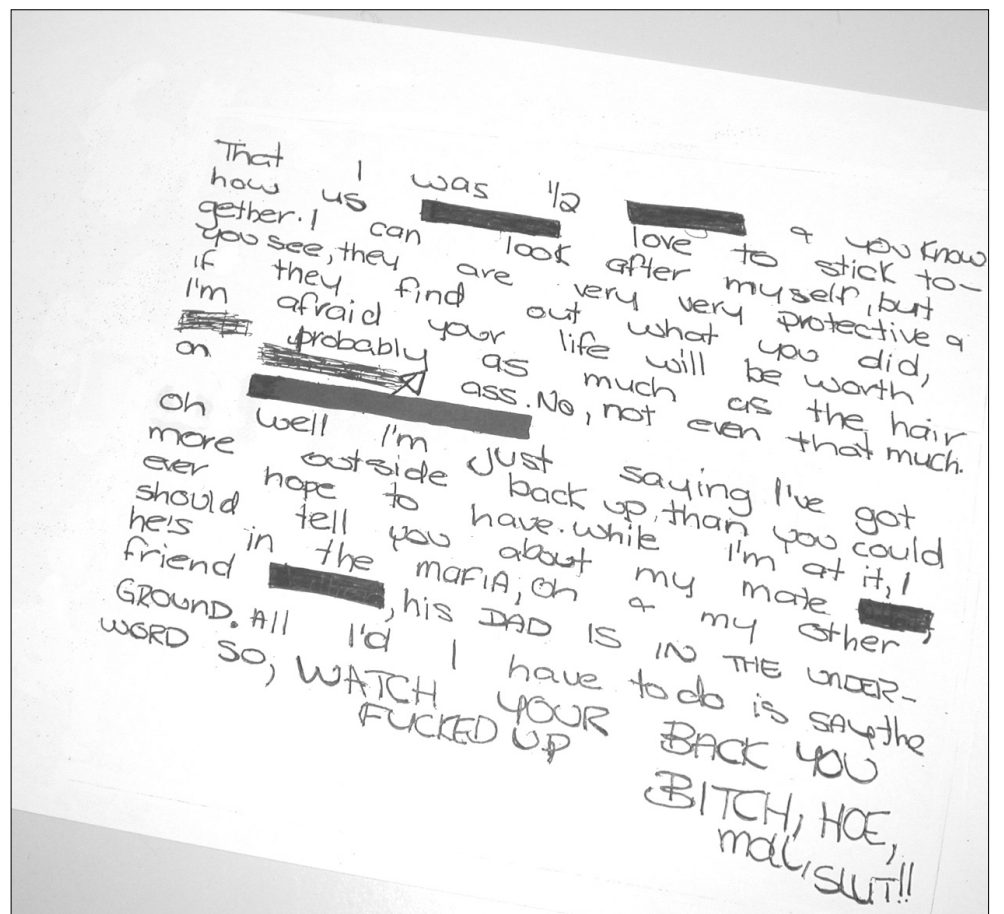 That I was 1/2 & you know
how us love to stick to-
gether. I can look after myself, but
you see, they are very very protective &
if they find out what you did,
I'm afraid your life will be worth
probably as much as the hair
on ass. No, not even that much.
Oh well I'm just saying I've got
more outside back up, than you could
ever hope to have. while I'm at it, I
should tell you about my mate ,
he's in the mAFIA; Oh & my other
friend , his DAD IS IN THE UNDER-
GROUND. All I'd I have to do is SAY the
WORD SO, WATCH YOUR BACK YOU
FUCKED UP BITCH, HOE,
SLUT!!